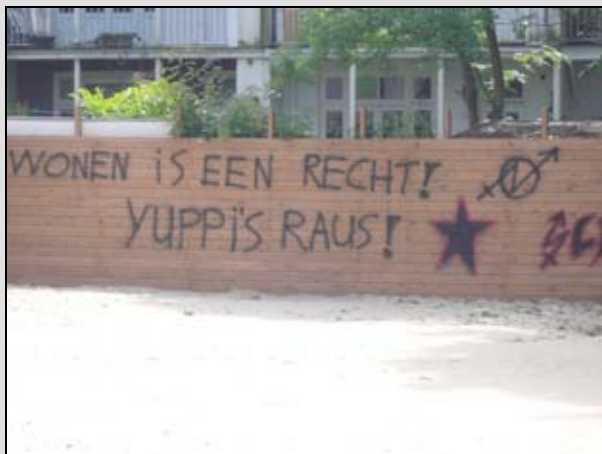 WONEN iS EEN RECHT!
YUPPi'S RAUS!